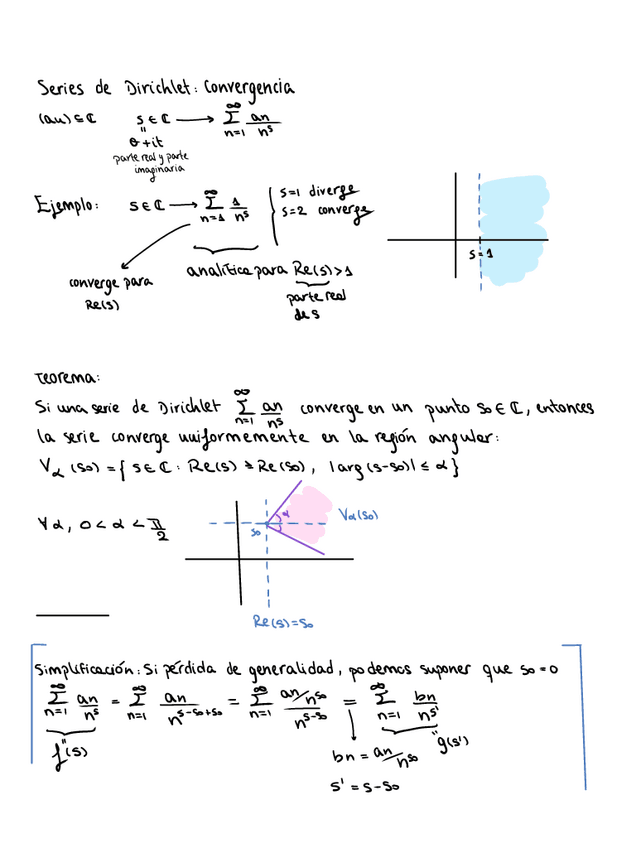 Series de Dirichlet: Convergencia
(an) ⊆ ℂ s ∈ ℂ ⟶ ∞∑n=1 an/n^s
"
σ + it
parte real y parte
imaginaria
Ejemplo: s ∈ ℂ ⟶ ∞∑n=1 1/n^s { s=1 diverge
s=2 converge
s=1
converge para
Re(s)
analítica para Re(s)>1
parte real
de s
Teorema:
Si una serie de Dirichlet ∞∑n=1 an/n^s converge en un punto s0 ∈ ℂ, entonces
la serie converge uniformemente en la región angular:
Vα (s0) = { s ∈ ℂ : Re(s) ≥ Re(s0), |arg(s-s0)| ≤ α }
∀α, 0 < α < π/2
α
Vα(s0)
s0
Re(s)=s0
Simplificación: Si pérdida de generalidad, podemos suponer que s0=0
∞∑n=1 an/n^s = ∞∑n=1 an/n^(s-s0+s0) = ∞∑n=1 (an/n^s0)/n^(s-s0) = ∞∑n=1 bn/n^s'
" f(s)
" g(s')
bn = an/n^s0
s' = s-s0